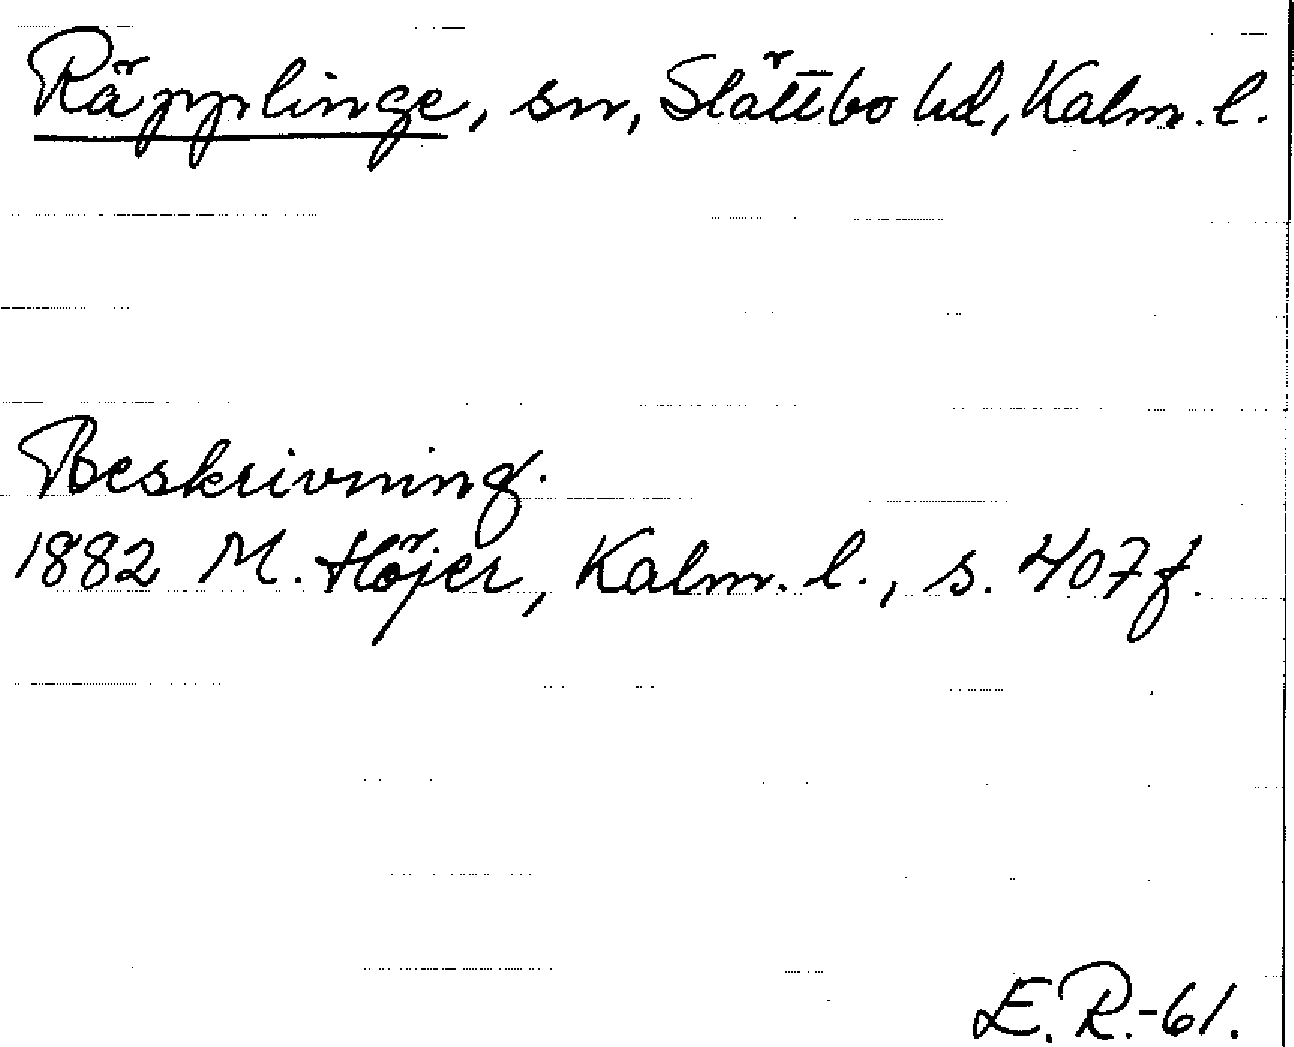 Räpplinge, sn, Slättbo hd, Kalm. l.
Beskrivning.
1882 M. Höjer, Kalm. l., s. 407 f.
E. R.-61.